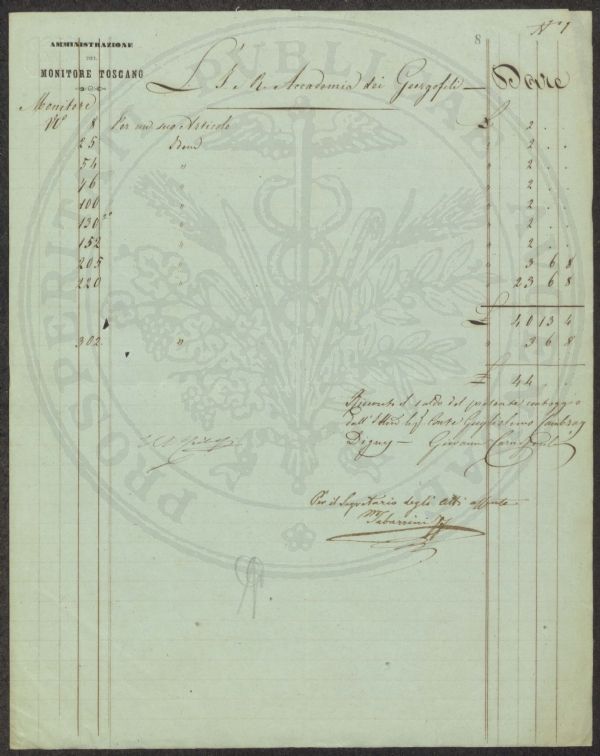 8 N° 1
AMMINISTRAZIONE
DEL
MONITORE TOSCANO
L'I. R. Accademia dei Georgofili — Dare
Monitore
N° 8 Per un suo Articolo £ 2 . .
25 Simile " 2 . .
54 " " 2 . .
76 " " 2 . .
100 " " 2 . .
130 " " 2 . .
152 " " 2 . .
205 " " 3 6 8
220 " " 23 6 8
£ 40 13 4
302 " " 3 6 8
£ 44 . .
Ricevuto il saldo del presente conteggio
dall' Sig. Conte Guglielmo Cambray
Digny — Giovanni
Per il Segretario degli Atti assente
Tabarrini
PROSPERITATI PUBLICAE